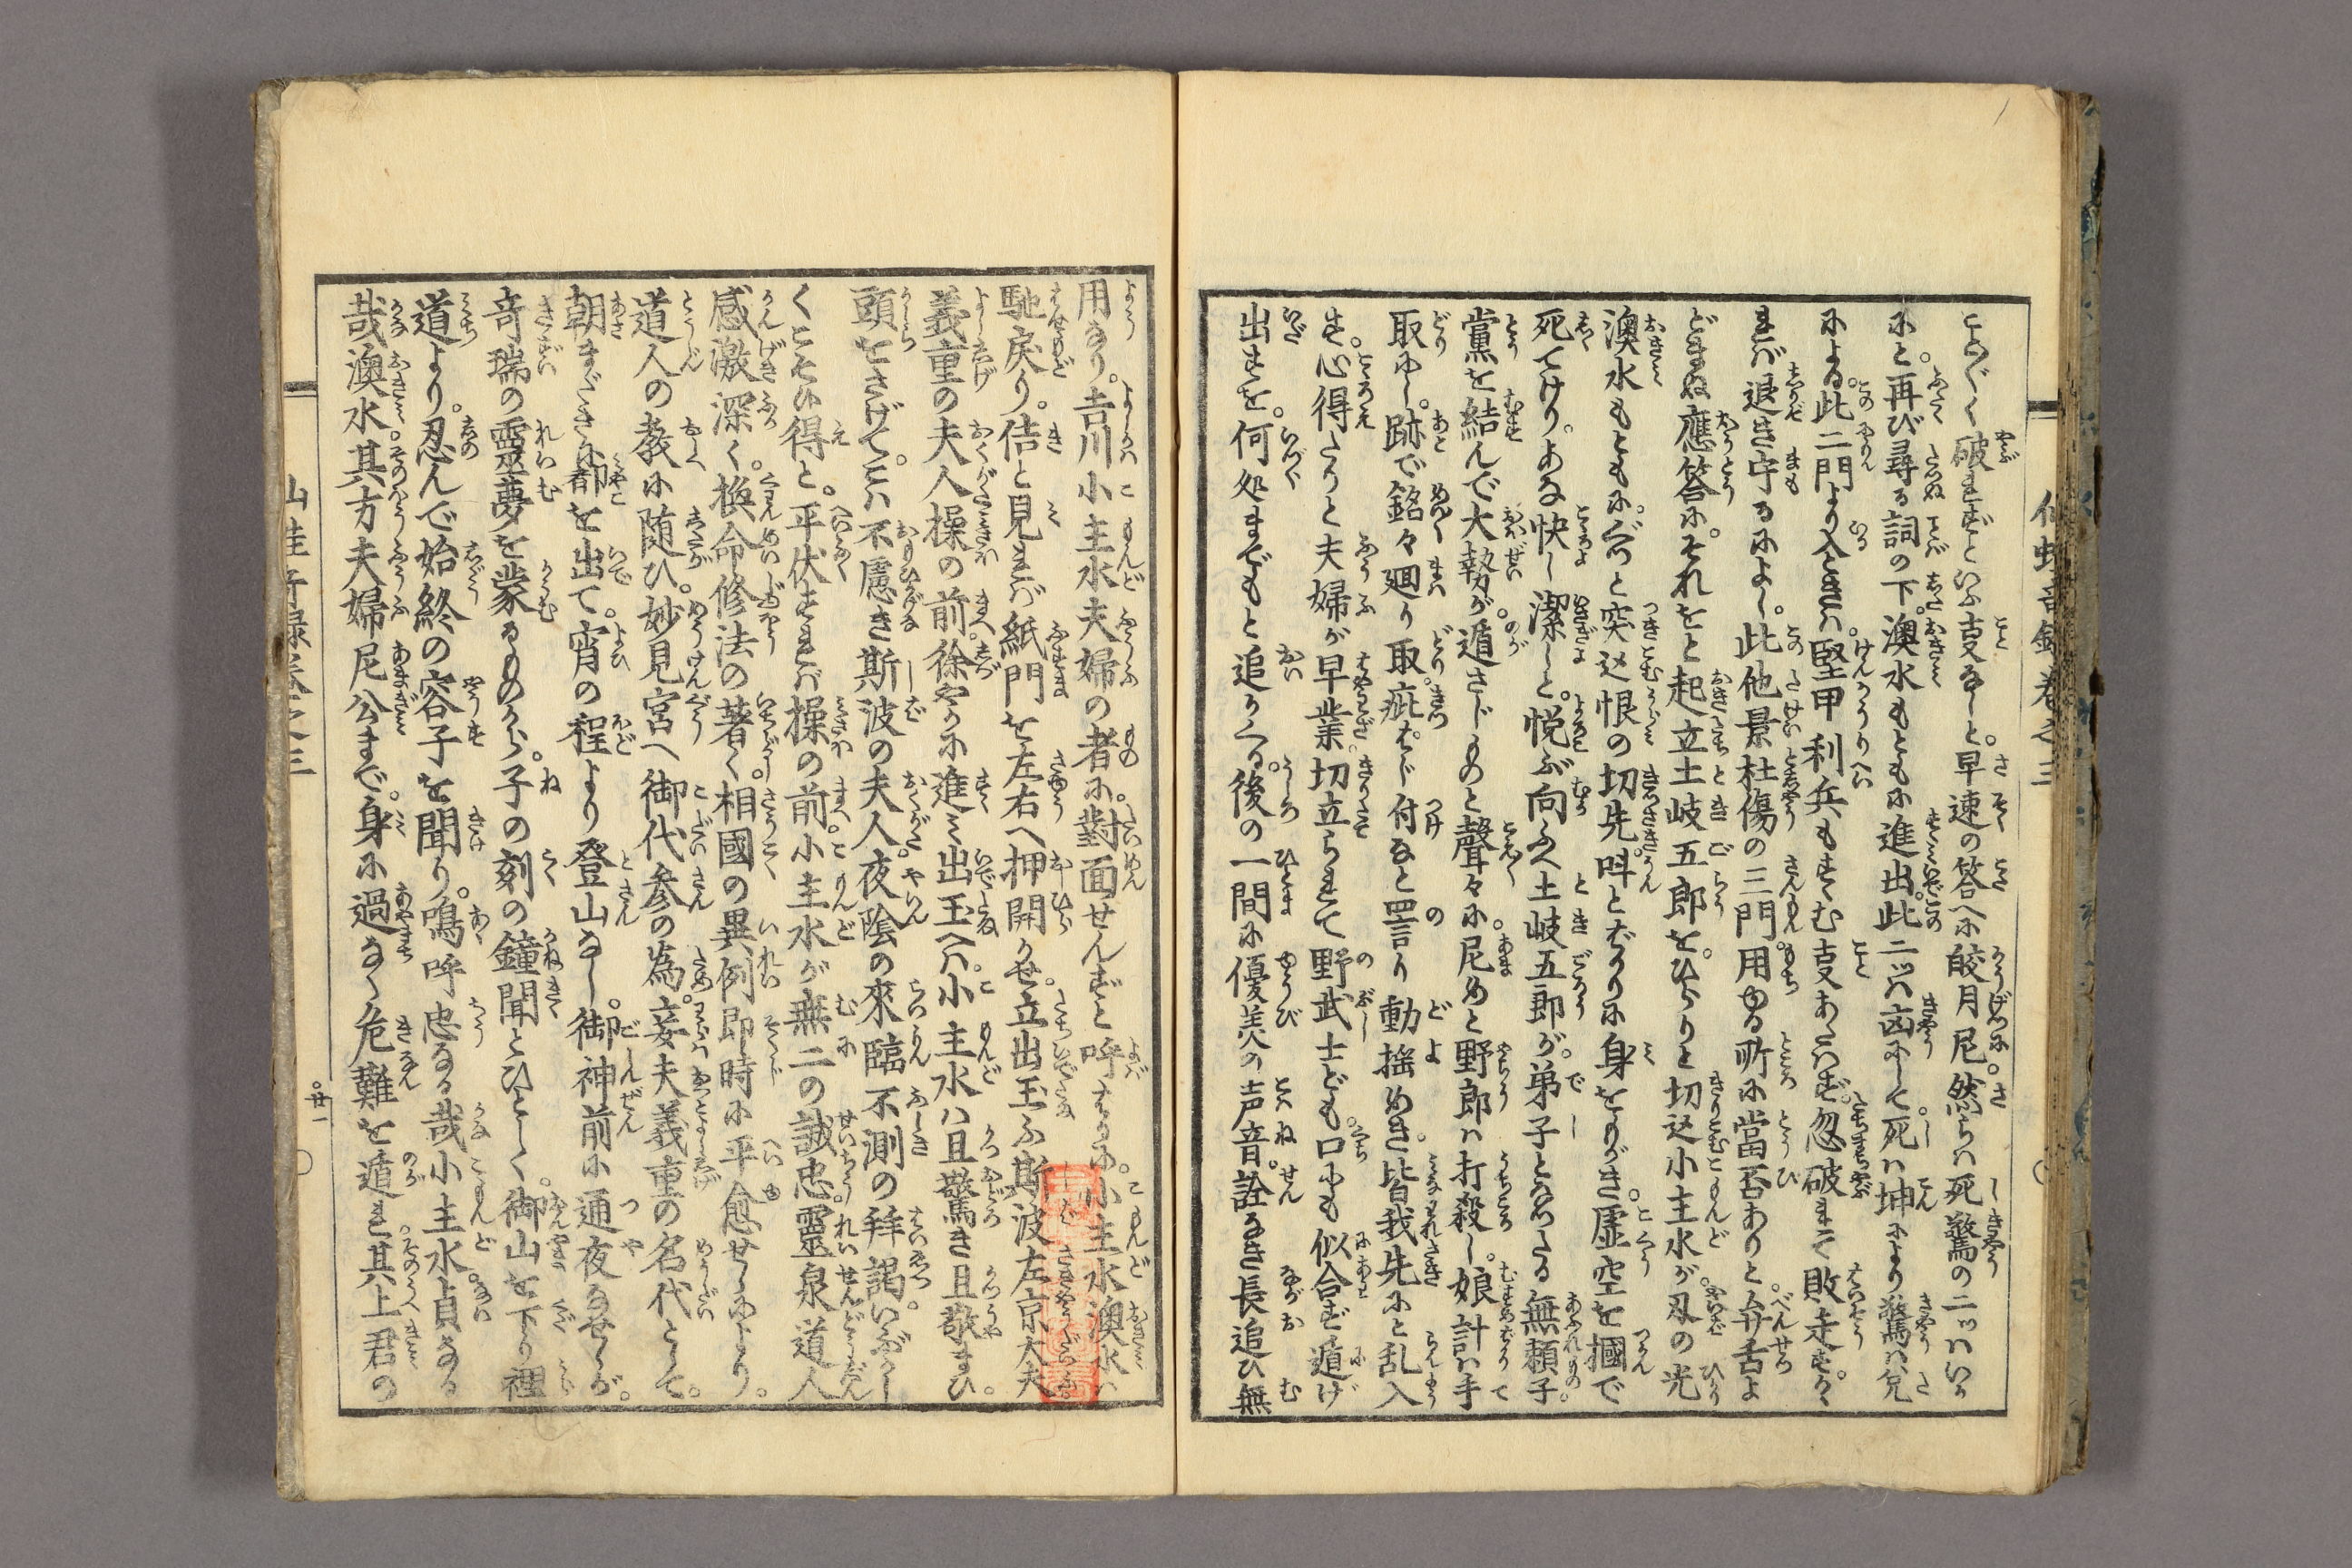 こと〴〵く破れずといふ事なしと。早速の答へに皎月尼。然らハ死驚の二ツハいか
にと。再び尋る詞の下。澳水もともに進出。此二ツハ凶にして死ハ坤により驚ハ兌
による。此二門より入ときハ。堅甲利兵もすゝむ事あたハず。忽破れて敗走す。か
れバ退き守るによし。此他景杜傷の三門。用ゆる所に當否ありと。弁舌よ
どまぬ應答に。それをと起立土岐五郎を。ひらりと切込小主水が。刄の光
澳水もともに。ぐつと突込恨の切先。呍とばかりに身をもがき。虚空を摑で
死てけり。あな快し潔しと。悦ぶ向ふへ土岐五郎が。弟子となつたる無頼子。
黨を結んで大勢が。遁さじものと聲々に。尼めと野郎ハ打殺し。娘計ハ手
取にし。跡で銘々廻り取。疵ばし付なと罵り動揺めき。皆我先にと乱入
す。心得たりと夫婦が早業。切立られて野武士ども。口にも似合ず遁げ
出すを。何処までもと追かくる。後の一間に優美の声音。詮なき長追ひ無
用なり。吉川小主水夫婦の者に。對面せんずと呼はるに。小主水澳水ハ
馳戻り。佶と見れバ紙門を左右へ押開かせ。立出玉ふ斯波左京大夫
義重の夫人操の前徐やかに進ミ出玉へハ。小主水ハ且驚き且敬まひ。
頭をさげて。こハ不慮き斯波の夫人。夜陰の來臨不測の拜謁。いぶかし
くこそひ得と。平伏すれバ操の前。小主水が無二の誠忠。靈泉道人
感激深く。換命修法の著く。相國の異例即時に平愈せしにより。
道人の教に随ひ。妙見宮へ御代参の為。妾夫義重の名代として。
朝まだきに都を出て。宵の程より登山なし。御神前に通夜なせしが。
奇瑞の靈夢を蒙るものから。子の刻の鐘聞とひとしく。御山を下り裡
道より。忍んで始終の容子を聞り。鳴呼忠なる哉小主水。貞なる
哉澳水。其方夫婦尼公まで。身に過なく危難を遁れ。其上君の